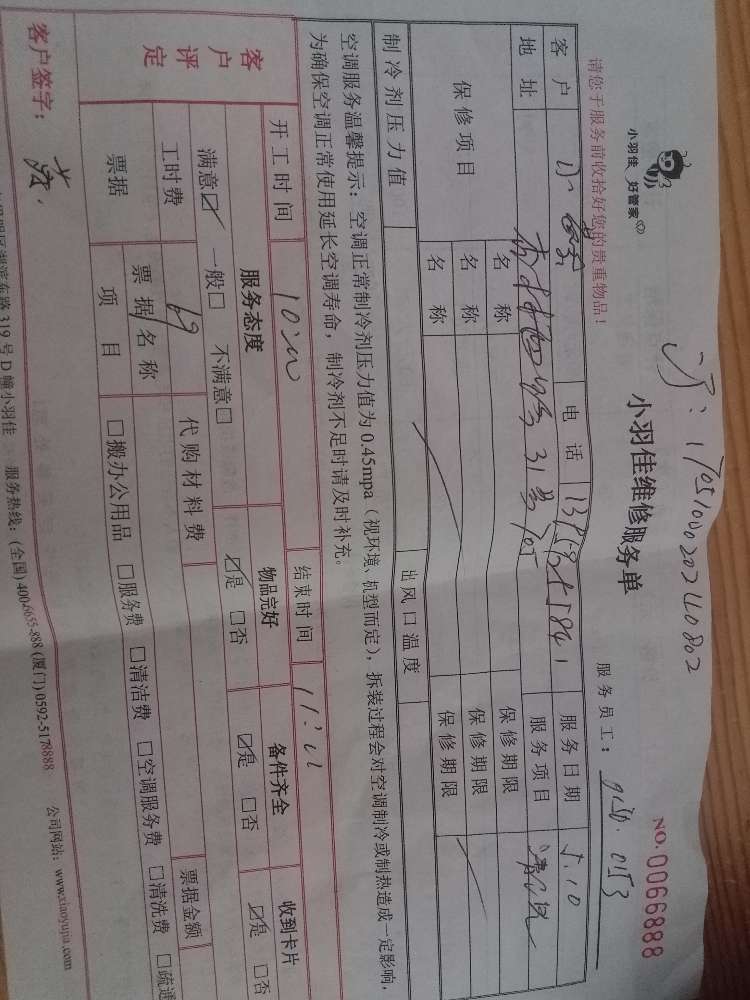 订：170510002024 0802
小羽佳 好管家
小羽佳维修服务单
NO.0066888
请您于服务前收拾好您的贵重物品！
服务员工：9150.0153
客户 电话 服务日期 5.10
地址 31号705 服务项目
保修项目 名称 保修期限
名称 保修期限
名称 保修期限
制冷剂压力值 出风口温度
空调服务温馨提示：空调正常制冷剂压力值为0.45mpa（视环境、机型而定），拆装过程会对空调制冷或制热造成一定影响，
为确保空调正常使用延长空调寿命，制冷剂不足时请及时补充。
开工时间 10:00 结束时间 11:00
客户评定 服务态度 物品完好 备件齐全 收到卡片
满意☑ 一般□ 不满意□ ☑是 □否 ☑是 □否 ☑是 □否
工时费 69 代购材料费
票据 票据名称 票据金额
项目 □搬办公用品 □服务费 □清洁费 □空调服务费 □清洗费 □疏通
客户签字：
路319号D幢小羽佳 服务热线：(全国)4006655-888 (厦门)0592-5178888 公司网站：www.xiaoyujia.com